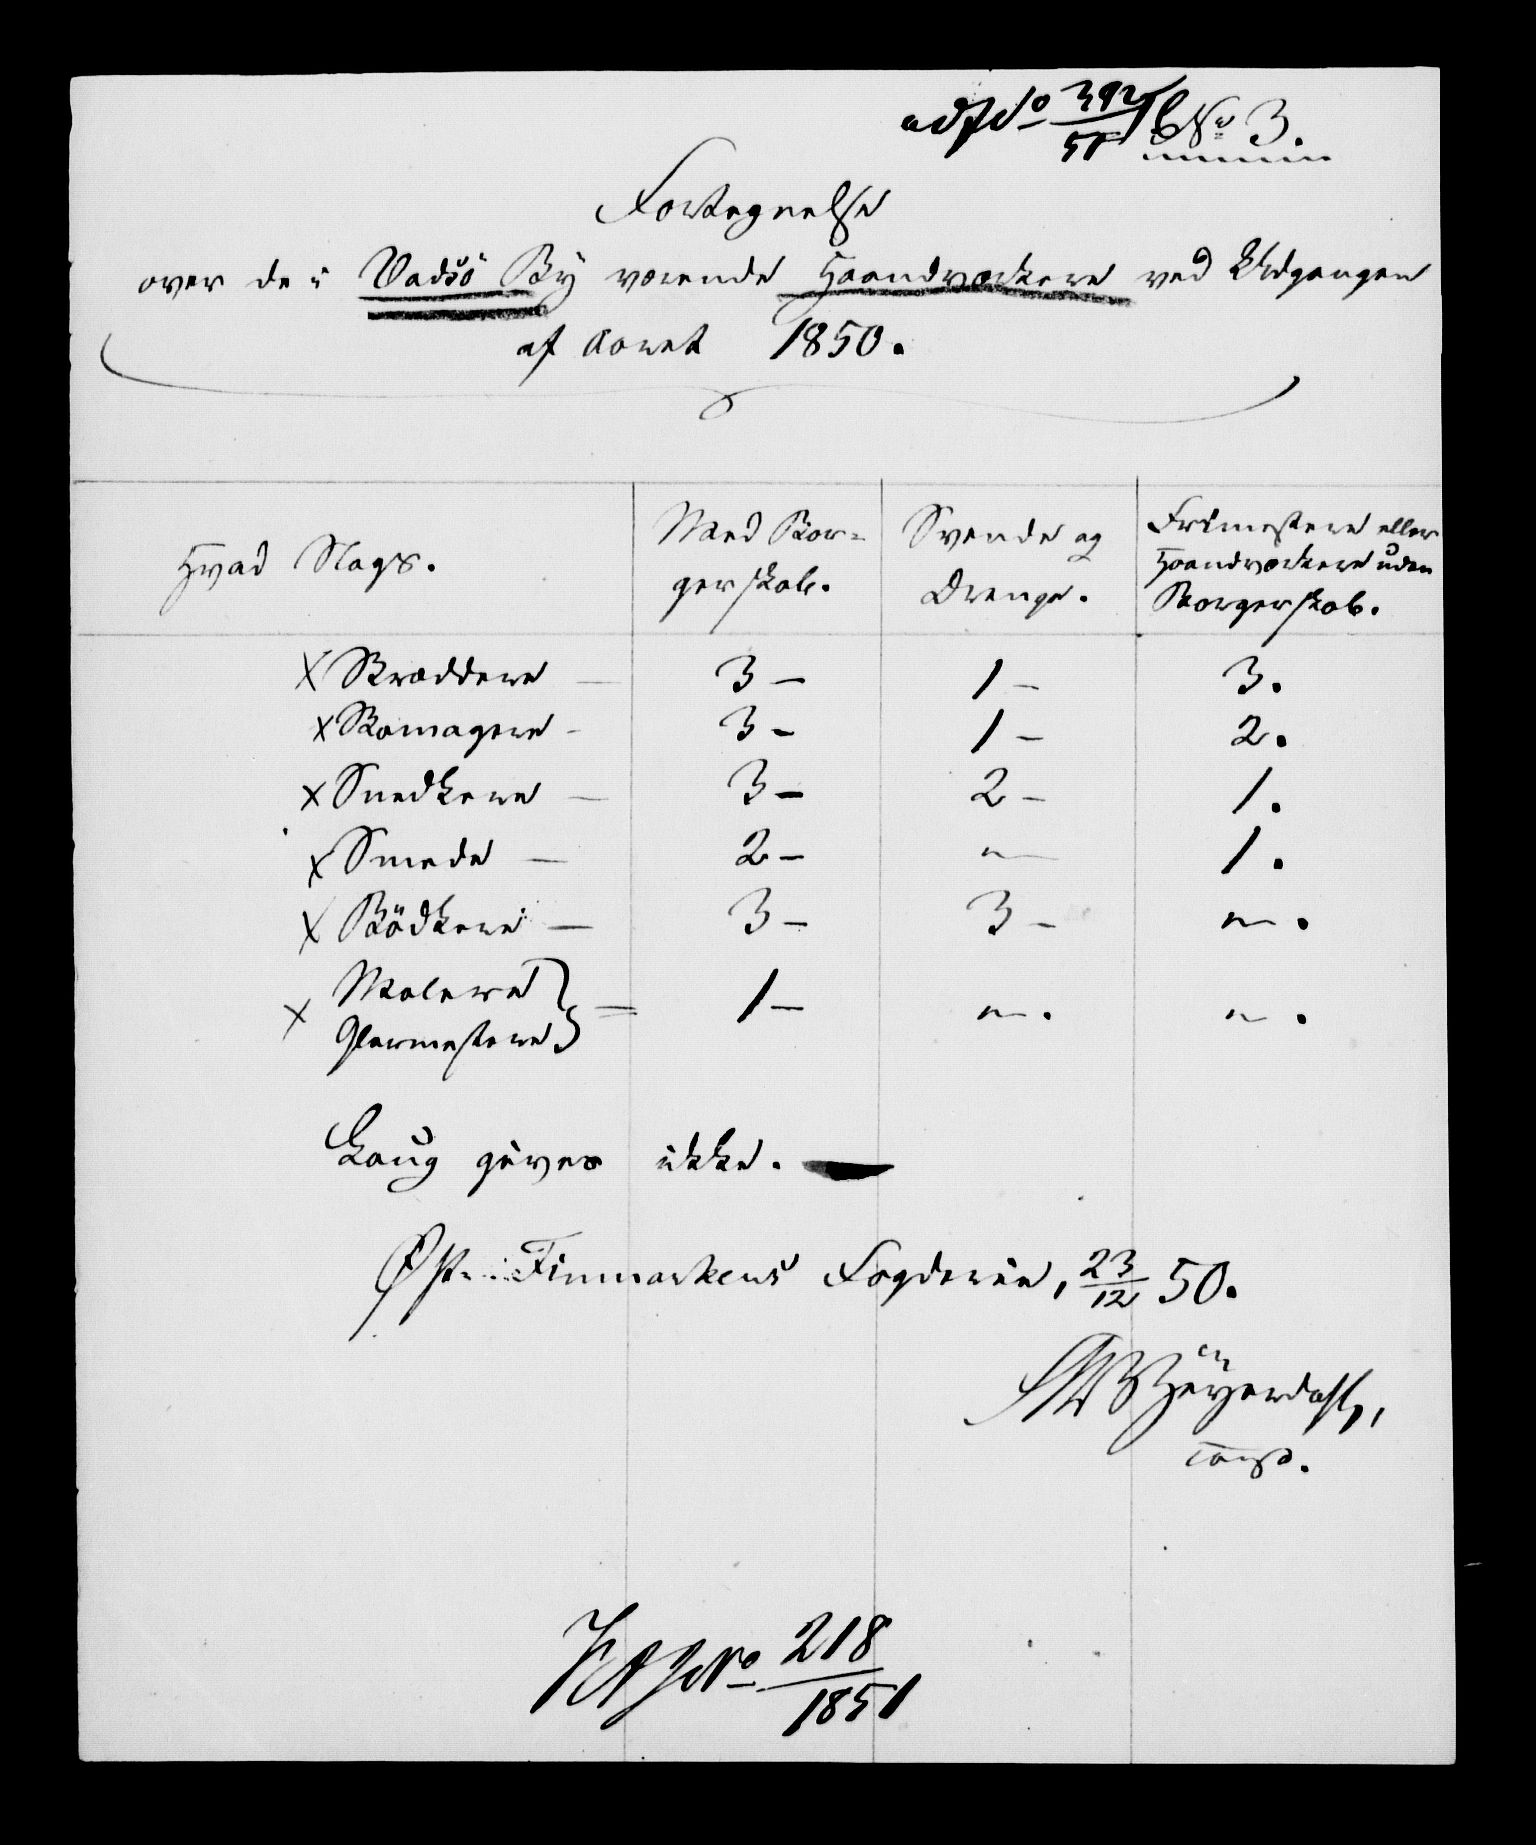 ad J No 392/51 b No 3.
Fortegnelse
over de i Vadsö By værende Haandværkere ved Udgangen
af Aaret 1850.
Hvad Slags. Med Borgerskab. Svende og Drenge. Frimestere eller Haandværkere uden Borgerskab.
x Skræddere — 3 – 1 – 3.
x Skomagere – 3 – 1 – 2.
x Snedkere — 3 – 2 – 1.
x Smede — 2 – " — 1.
x Bödkere — 3 – 3 – " .
x Malere
Glarmestere } = 1 – " . " .
Laug gives ikke. —
Øst-Finmarkens Fogderie, 23/12 50.
Heyerdahl,
const.
J No 218/1851